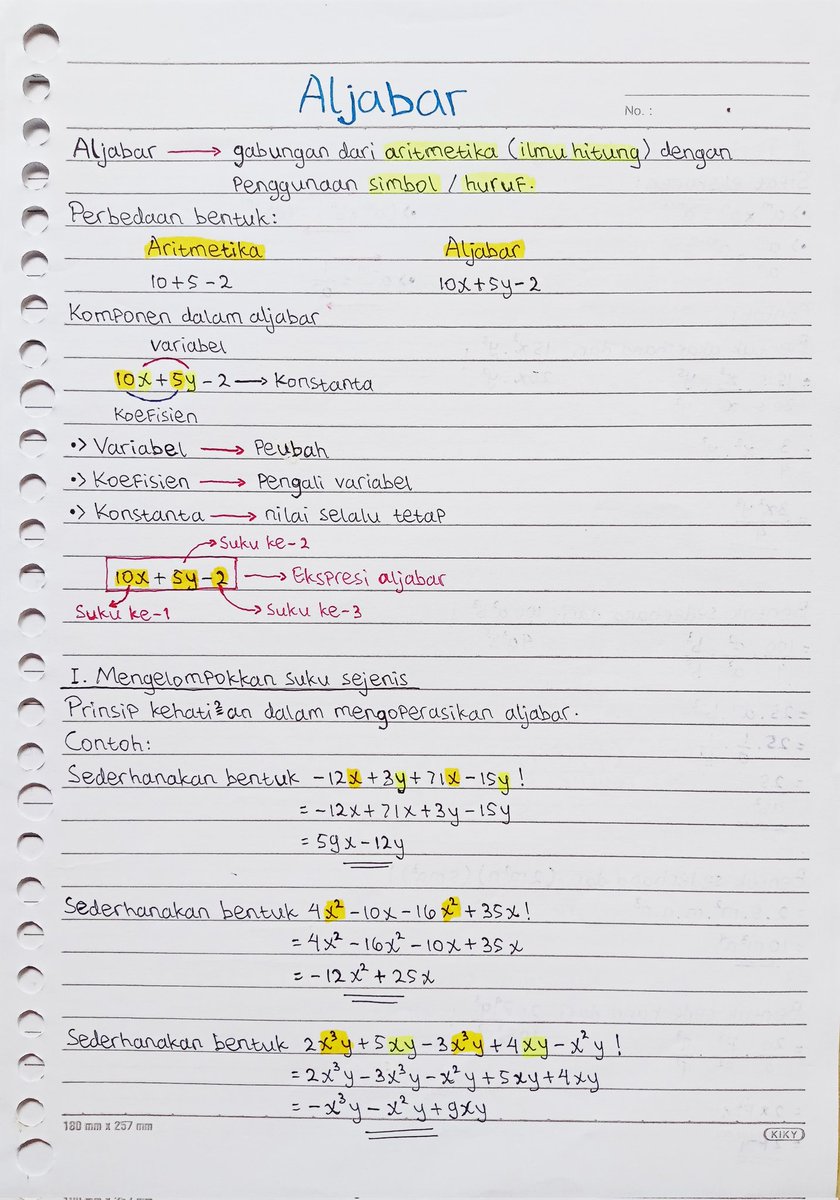 Aljabar
No. :
Aljabar → gabungan dari aritmetika (ilmu hitung) dengan
penggunaan simbol / huruf.
Perbedaan bentuk:
Aritmetika Aljabar
10+5-2 10x+5y-2
Komponen dalam aljabar
variabel
10x+5y-2 → Konstanta
Koefisien
•> Variabel → Peubah
•> Koefisien → Pengali variabel
•> Konstanta → nilai selalu tetap
Suku ke-2
10x+5y-2 → Ekspresi aljabar
Suku ke-1 Suku ke-3
I. Mengelompokkan suku sejenis
Prinsip kehati²an dalam mengoperasikan aljabar.
Contoh:
Sederhanakan bentuk -12x+3y+71x-15y!
= -12x+71x+3y-15y
= 59x-12y
Sederhanakan bentuk 4x²-10x-16x²+35x!
= 4x²-16x²-10x+35x
= -12x²+25x
Sederhanakan bentuk 2x³y+5xy-3x³y+4xy-x²y!
= 2x³y-3x³y-x²y+5xy+4xy
= -x³y-x²y+9xy
180 mm x 257 mm
KIKY